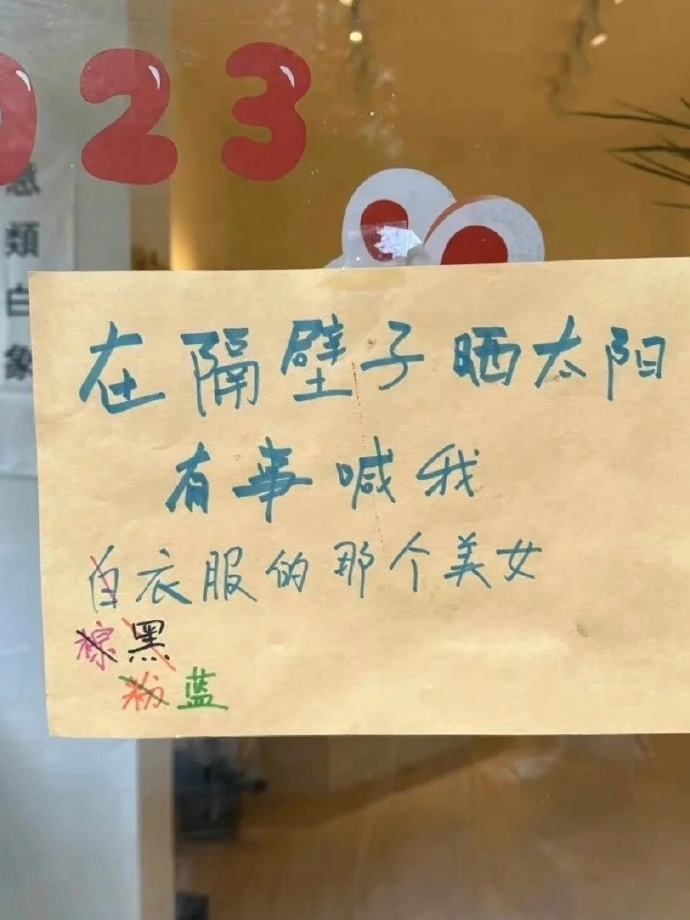 023
類白象
在隔壁子晒太阳
有事喊我
白衣服的那个美女
棕黑
粉蓝